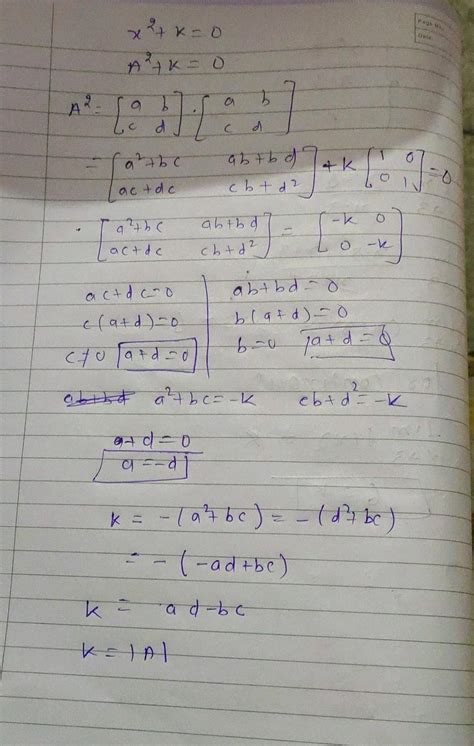 x²+k=0
A²+k=0
A²= [a b; c d] · [a b; c d]
= [a²+bc ab+bd; ac+dc cb+d²] + k [1 0; 0 1] =0
· [a²+bc ab+bd; ac+dc cb+d²] = [-k 0; 0 -k]
ac+dc=0
c(a+d)=0
c≠0 a+d=0
ab+bd=0
b(a+d)=0
b=0 a+d=0
ab+bd a²+bc=-k cb+d²=-k
a+d=0
a=-d
k = -(a²+bc) = -(d²+bc)
= -(-ad+bc)
k = ad-bc
k=|A|